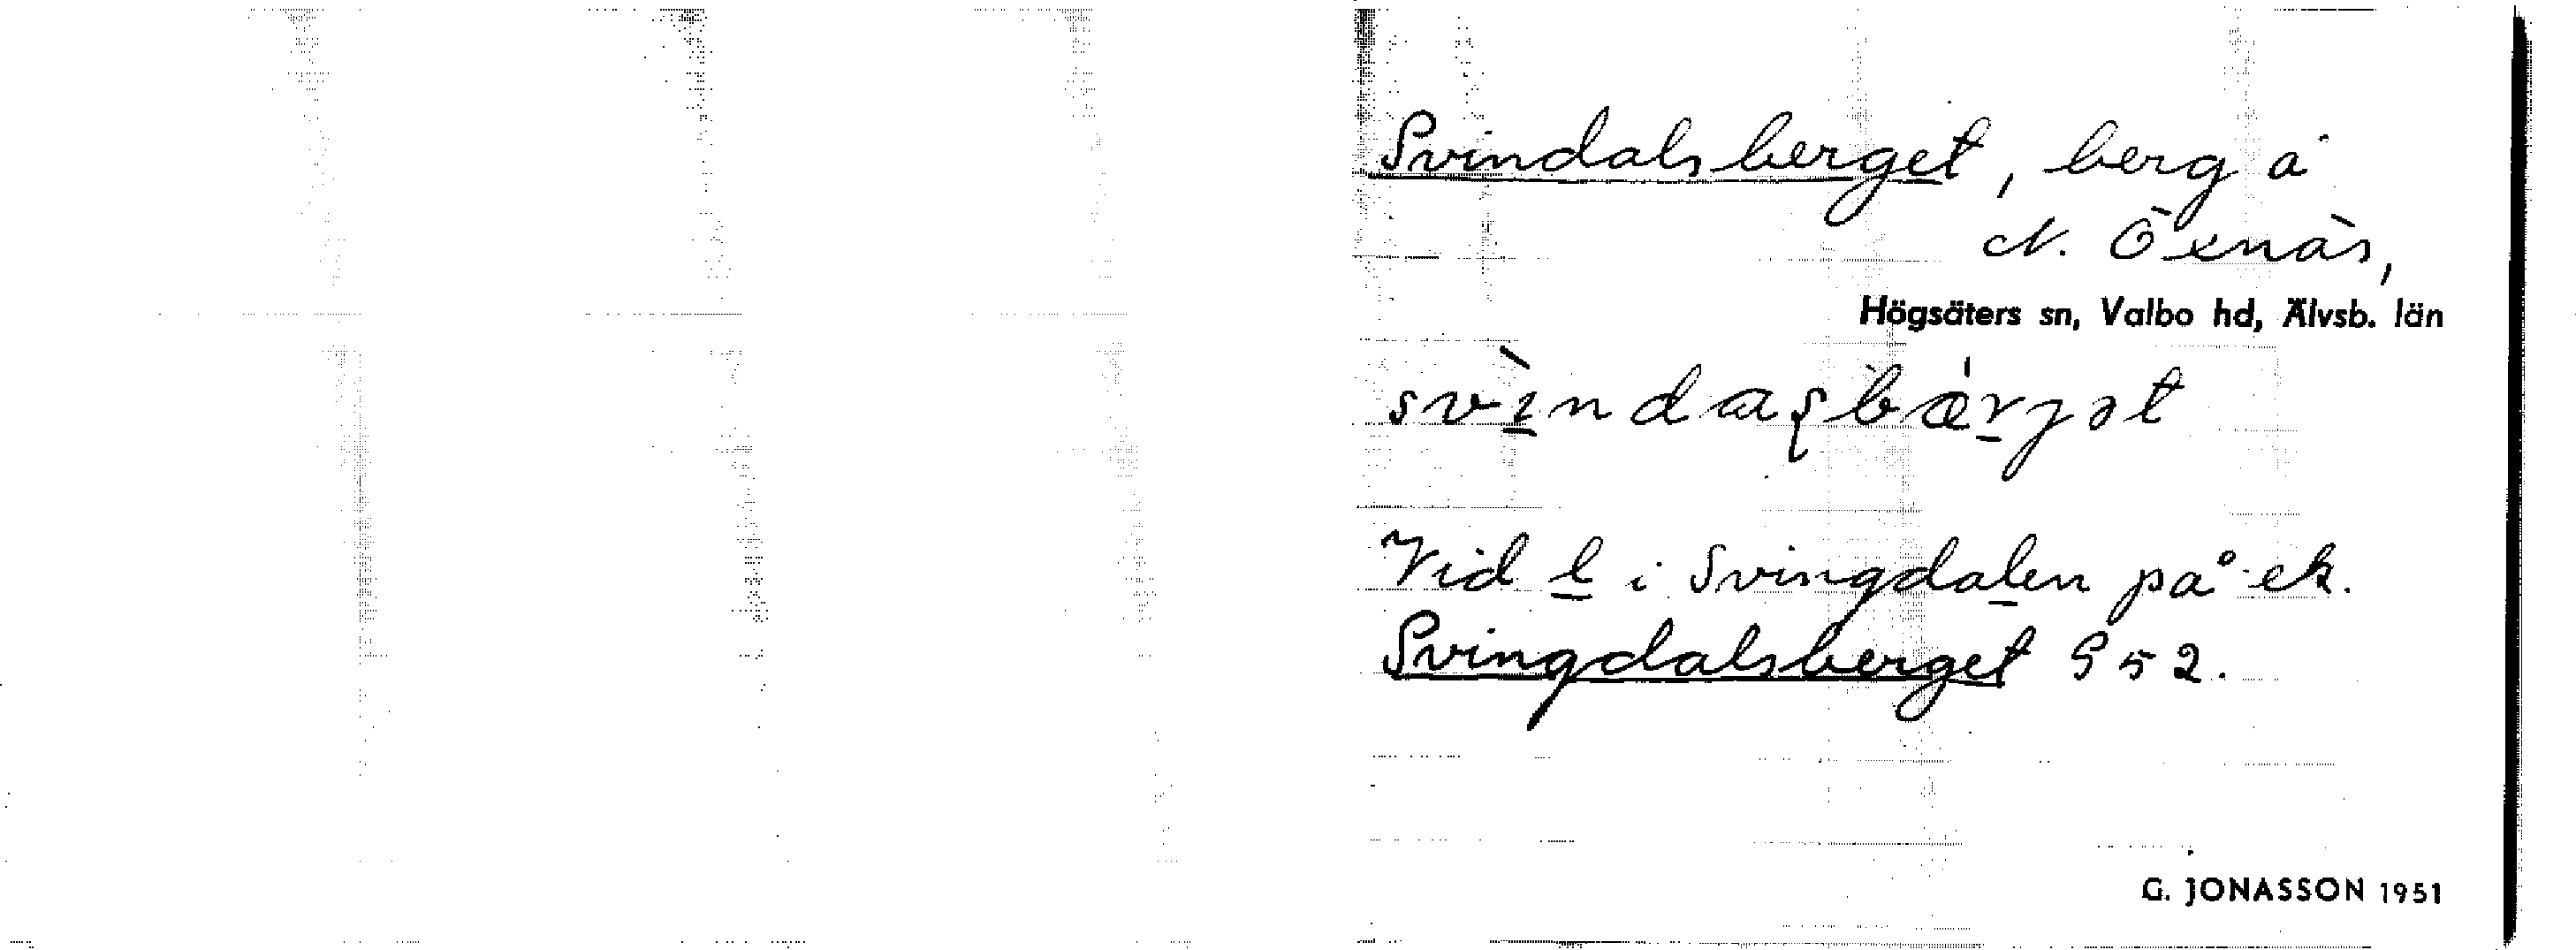 Svindalsberget, berg å
N. Öxnäs,
Högsäters sn, Valbo hd, Älvsb. län
svìndaʂbærjət
Vid l i Svingdalen på ek.
Svingdalsberget G 52.
G. JONASSON 1951